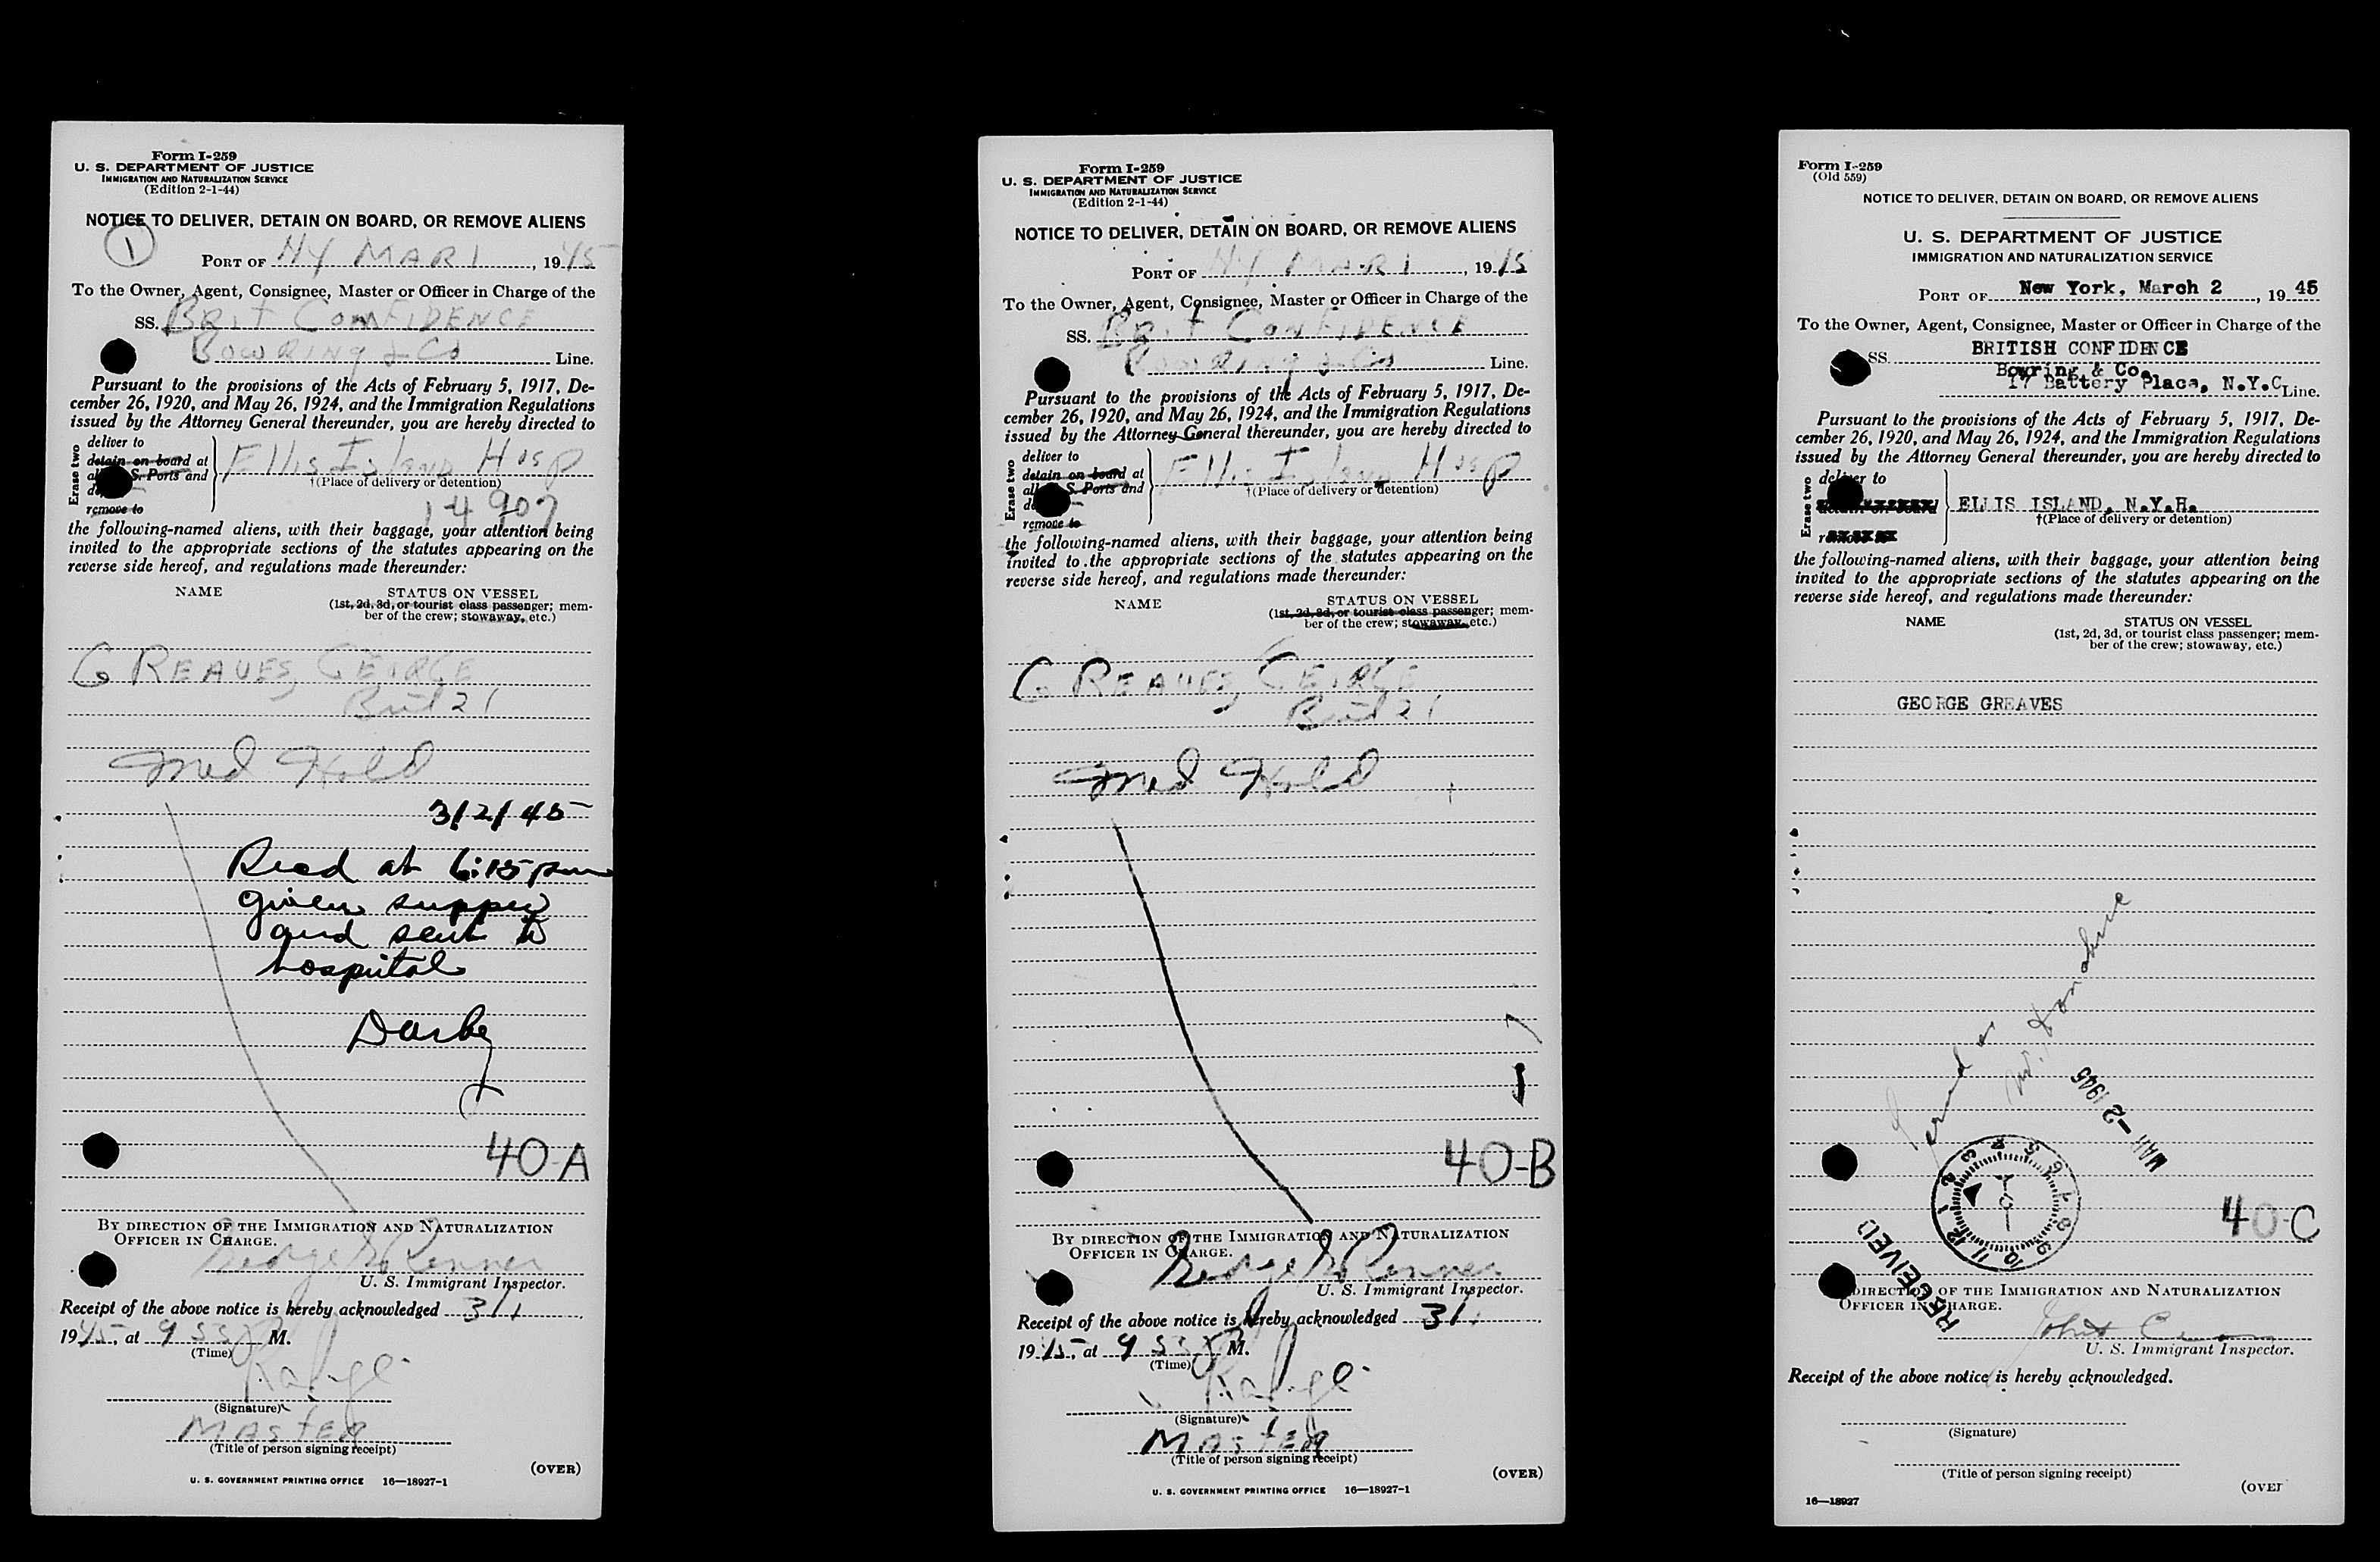 Form I-259
U. S. DEPARTMENT OF JUSTICE
IMMIGRATION AND NATURALIZATION SERVICE
(Edition 2-1-44)
NOTICE TO DELIVER, DETAIN ON BOARD, OR REMOVE ALIENS
1
PORT OF NY MAR 1, 1945
To the Owner, Agent, Consignee, Master or Officer in Charge of the
SS. BRIT CONFIDENCE
BOWRING & Co Line.
Pursuant to the provisions of the Acts of February 5, 1917, De-
cember 26, 1920, and May 26, 1924, and the Immigration Regulations
issued by the Attorney General thereunder, you are hereby directed to
Erase two
deliver to
detain on board at
S. Ports and
remove to
Ellis Island Hosp
†(Place of delivery or detention)
14907
the following-named aliens, with their baggage, your attention being
invited to the appropriate sections of the statutes appearing on the
reverse side hereof, and regulations made thereunder:
NAME STATUS ON VESSEL
(1st, 2d, 3d, or tourist class passenger; mem-
ber of the crew; stowaway, etc.)
GREAVES, GEORGE
Brit 21
Med Hold
3/2/45
Recd at 6:15 pm
given supper
and sent to
hospital
Darby
40-A
BY DIRECTION OF THE IMMIGRATION AND NATURALIZATION
OFFICER IN CHARGE.
George Renner
U. S. Immigrant Inspector.
Receipt of the above notice is hereby acknowledged 3/1
1945, at 9 53 M.
(Time)
(Signature)
MASTER
(Title of person signing receipt)
(OVER)
U. S. GOVERNMENT PRINTING OFFICE 16—18927-1
Form I-259
U. S. DEPARTMENT OF JUSTICE
IMMIGRATION AND NATURALIZATION SERVICE
(Edition 2-1-44)
NOTICE TO DELIVER, DETAIN ON BOARD, OR REMOVE ALIENS
PORT OF NY MAR 1, 1945
To the Owner, Agent, Consignee, Master or Officer in Charge of the
SS. BRIT CONFIDENCE
Bowring & Co Line.
Pursuant to the provisions of the Acts of February 5, 1917, De-
cember 26, 1920, and May 26, 1924, and the Immigration Regulations
issued by the Attorney General thereunder, you are hereby directed to
Erase two
deliver to
detain on board at
S. Ports and
remove to
Ellis Island Hosp
†(Place of delivery or detention)
the following-named aliens, with their baggage, your attention being
invited to the appropriate sections of the statutes appearing on the
reverse side hereof, and regulations made thereunder:
NAME STATUS ON VESSEL
(1st, 2d, 3d, or tourist class passenger; mem-
ber of the crew; stowaway, etc.)
GREAVES, GEORGE
Brit 21
Med Hold
40-B
BY DIRECTION OF THE IMMIGRATION AND NATURALIZATION
OFFICER IN CHARGE.
George Renner
U. S. Immigrant Inspector.
Receipt of the above notice is hereby acknowledged 3/1
1945, at 9 53 M.
(Time)
(Signature)
MASTER
(Title of person signing receipt)
(OVER)
U. S. GOVERNMENT PRINTING OFFICE 16—18927-1
Form I-259
(Old 559)
NOTICE TO DELIVER, DETAIN ON BOARD, OR REMOVE ALIENS
U. S. DEPARTMENT OF JUSTICE
IMMIGRATION AND NATURALIZATION SERVICE
PORT OF New York, March 2, 1945
To the Owner, Agent, Consignee, Master or Officer in Charge of the
SS. BRITISH CONFIDENCE
Bowring & Co.
17 Battery Place, N.Y.C. Line.
Pursuant to the provisions of the Acts of February 5, 1917, De-
cember 26, 1920, and May 26, 1924, and the Immigration Regulations
issued by the Attorney General thereunder, you are hereby directed to
Erase two
deliver to
ELLIS ISLAND, N.Y.H.
†(Place of delivery or detention)
the following-named aliens, with their baggage, your attention being
invited to the appropriate sections of the statutes appearing on the
reverse side hereof, and regulations made thereunder:
NAME STATUS ON VESSEL
(1st, 2d, 3d, or tourist class passenger; mem-
ber of the crew; stowaway, etc.)
GEORGE GREAVES
MAR -2 1945
1 2 3 4 5 6 7 8 9 10 11 12
RECEIVED
40-C
DIRECTION OF THE IMMIGRATION AND NATURALIZATION
OFFICER IN CHARGE.
U. S. Immigrant Inspector.
Receipt of the above notice is hereby acknowledged.
(Signature)
(Title of person signing receipt)
(OVER
16—18927